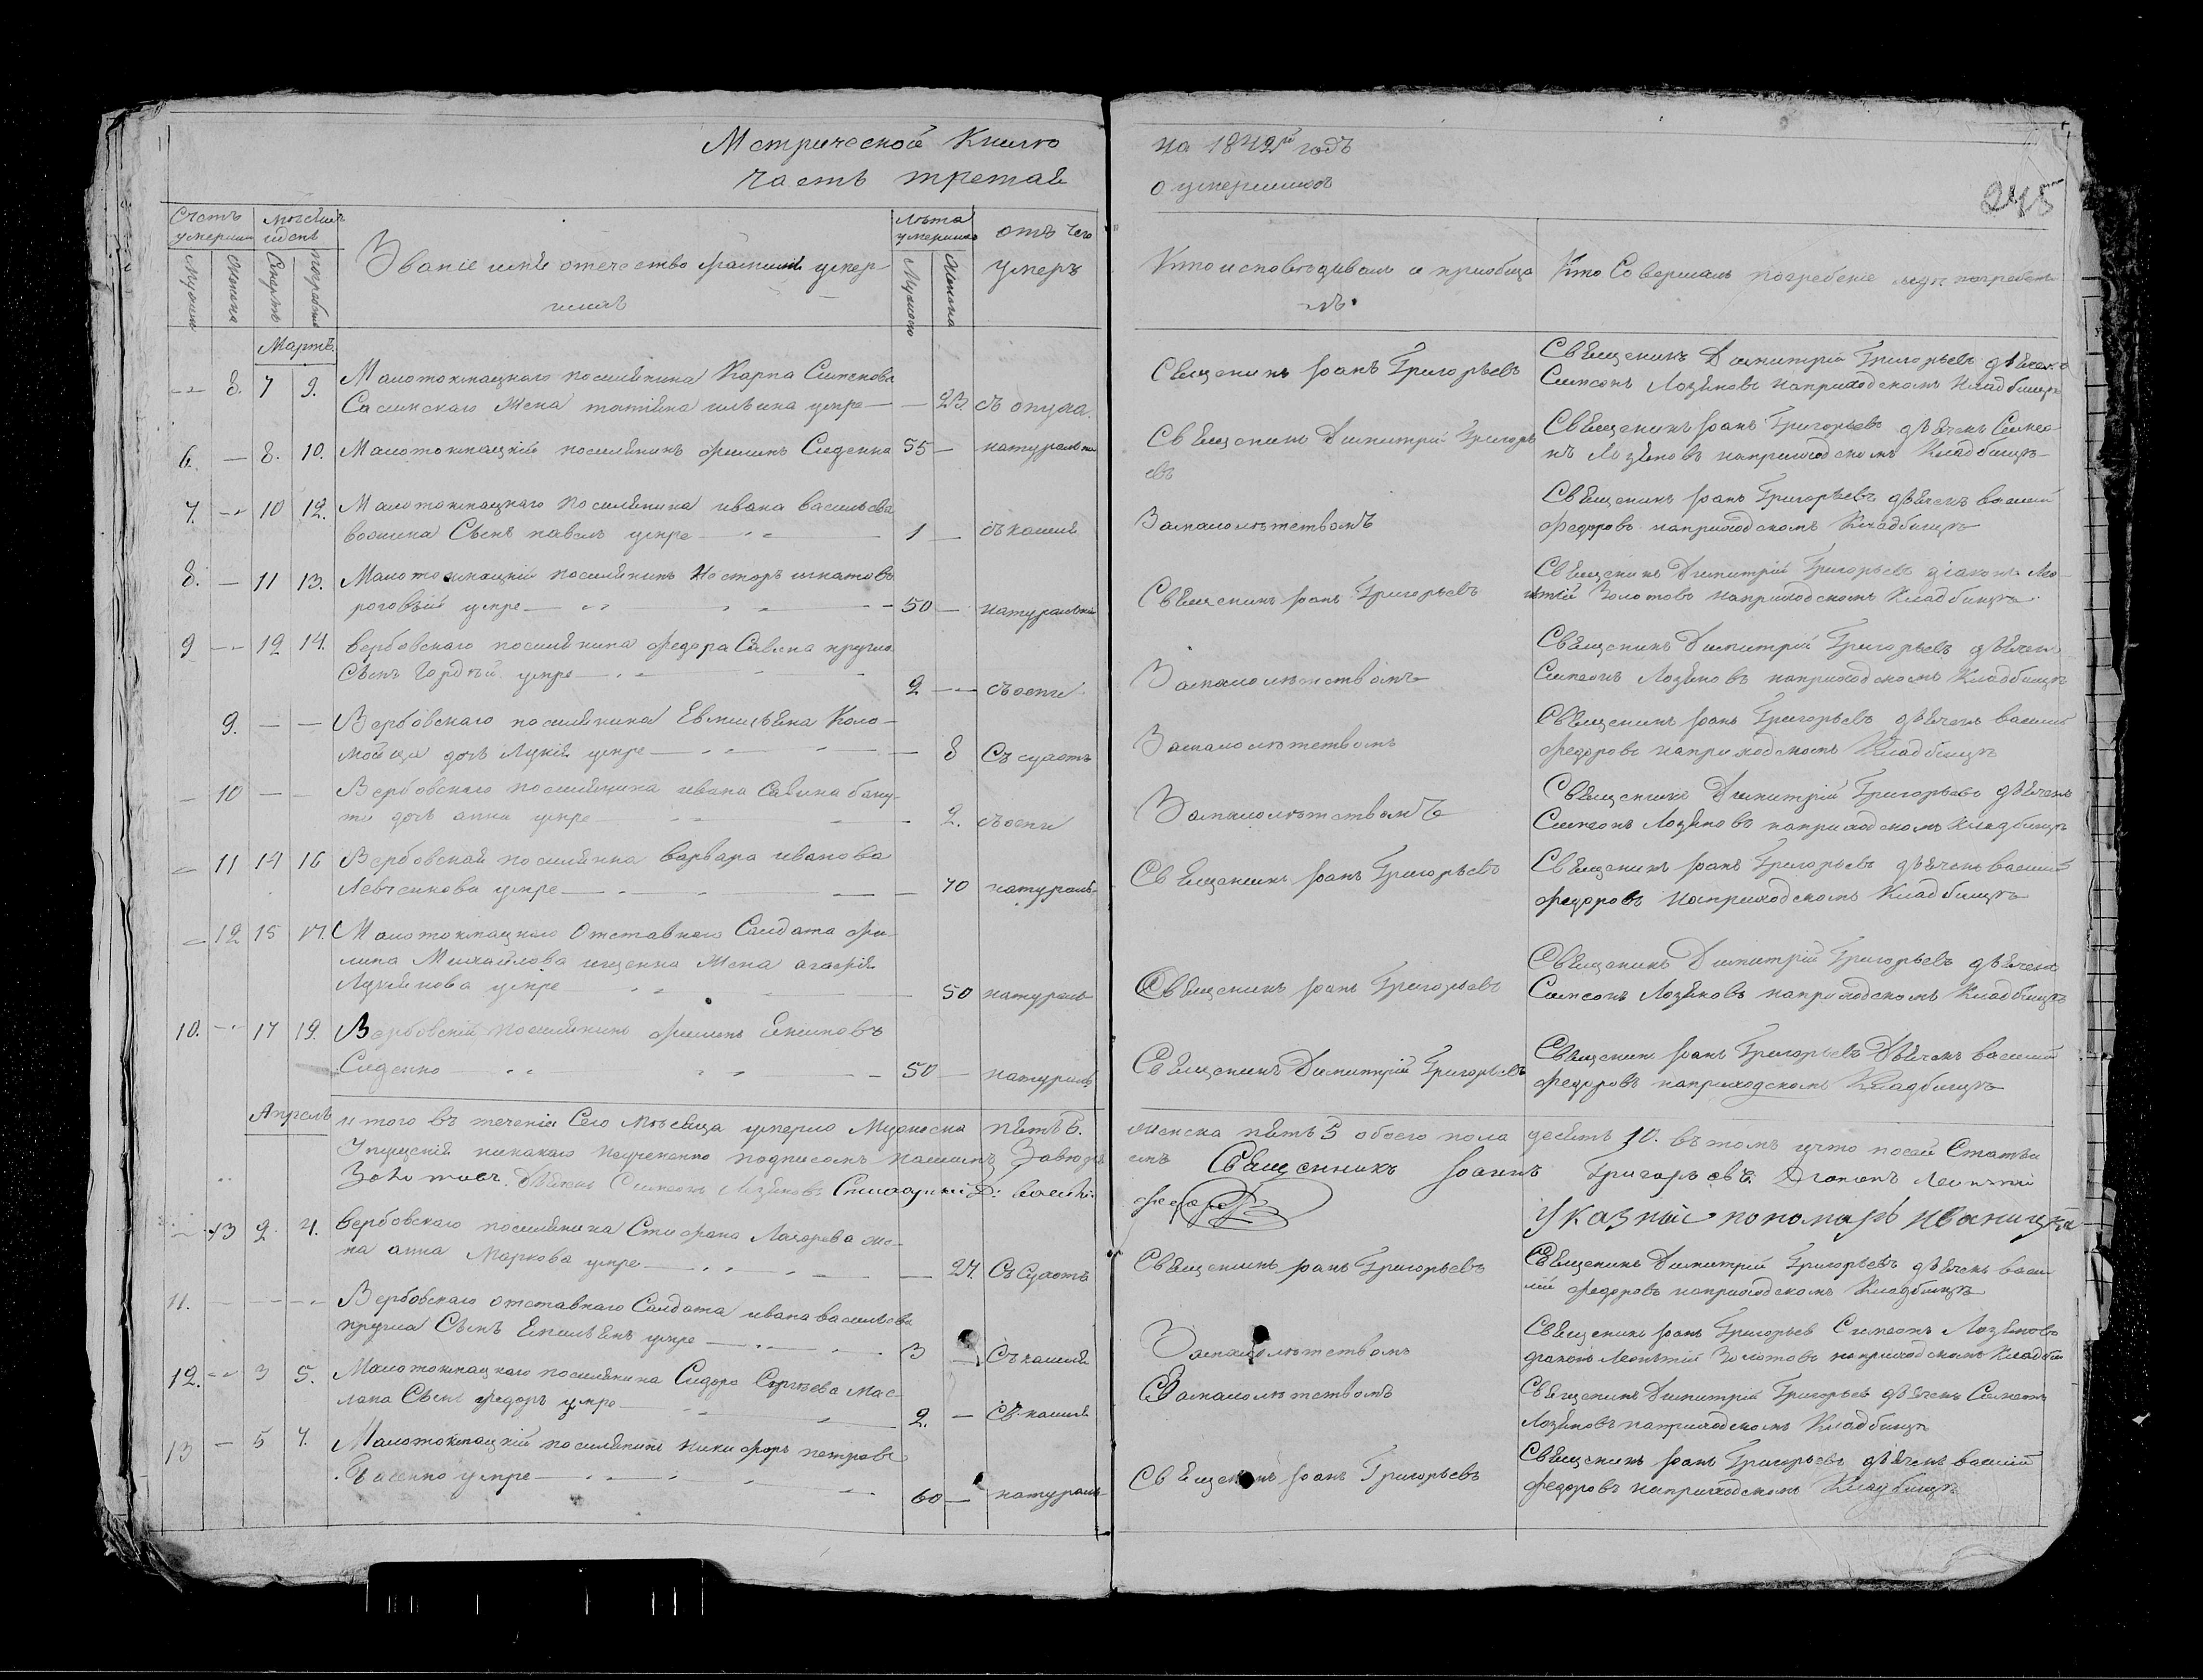 Метрической Книги
часть третая
на 1842й годъ
о умершихъ
245
Счетъ умерши
месяцъ идень
Званіе имя отечество фамилия умер-
шихъ
лѣта умершаго
отъ чего умеръ
Ктоисповѣдивалъ и приобща
лъ.
Кто Совершалъ погребение игдѣ погребены
Мужска
Женска
Смерть
погребен
Мужеско
Женска
Мартъ.
8. 7 9. Малотокмацкаго поселянина Карпа Сименова
Жена татіяна ильина умре — 23. съ опуха.
Священикъ Іоанъ Григорьевъ
Священикъ Димитрій Григорьевъ дьячекъ
Симеонъ Лозяновъ наприходскомъ Кладбищѣ
6. — 8. 10. Малотокмацкій поселянинъ филипъ Сиденко 55 — натурально
Священикъ Димитрій Григорь
евъ
Священикъ Іоанъ Григорьевъ дьячекъ Симео-
нъ Лозяновъ наприходскомъ Кладбищѣ
7. — 10 12. Малотокмацкаго поселянина ивана васильева
Сынъ павелъ умре — 1 — съ кашля
Замалолѣтствомъ
Священикъ Іоанъ Григорьевъ дьячекъ василій
федоровъ наприходскомъ Кладбищѣ
8. — 11 13. Малотокмацкій поселянинъ Несторъ игнатовъ
роговый умре — 50 — натуральній
Священикъ Іоанъ Григорьевъ
Священикъ Димитрій Григорьевъ діаконъ Лео-
нтій Золотовъ наприходскомъ Кладбищѣ
9 — 12 14. вербовскаго поселянина федора Савина
Сынъ Гордѣй умре — 2 — съ оспи
Замалолѣтствомъ
Священикъ Димитрій Григорьевъ дьячекъ
Симеонъ Лозяновъ наприходскомъ Кладбищѣ
9. — — Вербовскаго поселянина Евмильяна Коло-
мойца дочь Лукія умре — 8 Съ сухотъ
Замалолѣтствомъ
Священикъ Іоанъ Григорьевъ дьячекъ василій
федоровъ наприходскомъ Кладбищѣ
— 10 — — Вербовскаго поселянина ивана Савина
дочь анна умре — 2. съ оспи
Замалолѣтствомъ
Священикъ Димитрій Григорьевъ дьячекъ
Симеонъ Лозяновъ наприходскомъ Кладбищѣ
— 11 14 16 Вербовская поселянка варвара иванова
Левченкова умре — 70 натураль-
Священикъ Іоанъ Григорьевъ
Священикъ Іоанъ Григорьевъ дьячекъ василій
федоровъ наприходскомъ Кладбищѣ
— 12 15 17. Малотокмацкаго Отставнаго Салдата фи-
липа Михайлова ищенка Жена агафія
Лукянова умре — 50 натураль
Священикъ Іоанъ Григорьевъ
Священикъ Димитрій Григорьевъ дьячекъ
Симеонъ Лозяновъ наприходскомъ Кладбищѣ
10. — 17 19. Вербовскій поселянинъ филипъ Екимовъ
Сиденко — 50 — натураль
Священикъ Димитрій Григорьевъ
Священикъ Іоанъ Григорьевъ Дьячекъ василій
федоровъ наприходскомъ Кладбищѣ
Апрель
итого въ теченіи Сего Мѣсяца умерло Мужеска пять 5.
женска пять 5 обоего пола десять 10. въ томъ что посей Статьи
Упущеній никакого подписомъ нашимъ
Священникъ Іоаннъ Григорьевъ. Діаконъ Леонтій
Золотовъ. Дьячекъ Симеонъ Лозяновъ
федоровъ
Указный пономарь
— 13 2. 4. Вербовскаго поселянина Стифана Лазарева же-
на анна Маркова умре — 27. Съ Сухотъ
Священикъ Іоанъ Григорьевъ
Священикъ Димитрій Григорьевъ дьячекъ васи
лій федоровъ наприходскомъ Кладбищѣ
11. — — Вербовскаго отставнаго Салдата ивана васильева
Сынъ Емильянъ умре — 3 — Съ кашля
Замалолѣтствомъ
Священикъ Іоанъ Григорьев Симеонъ Лозяновъ
діаконъ Леонтій Золотовъ наприходскомъ Кладби
12. — 3 5. Малотокмацкаго поселянина Сидора Сергѣева Мас
лака Сынъ федоръ умре — 2. — Съ кашля
Замалолѣтствомъ
Священикъ Димитрій Григорьев дьячекъ Симеонъ
Лозяновъ наприходскомъ Кладбищѣ
13 — 5 7. Малотокмацкій поселянинъ никифоръ петровъ
умре — 60 — натураль
Священикъ Іоанъ Григорьевъ
Священикъ Іоанъ Григорьевъ дьячекъ василій
федоровъ наприходскомъ Кладбищѣ